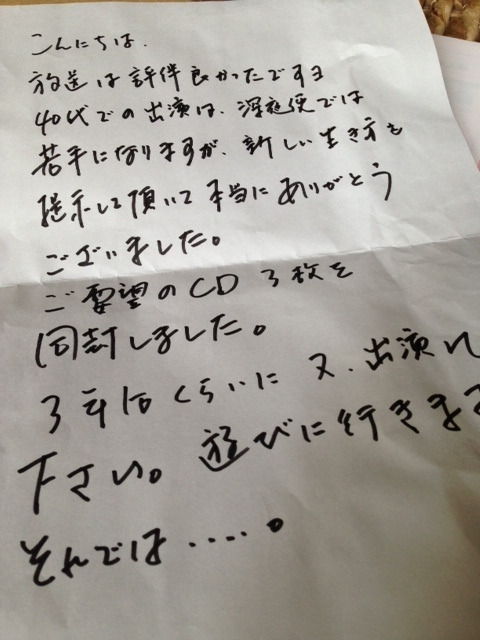 こんにちは.
放送は評伴良かったですヨ
40代での出演は、深夜便では
若手になりますが、新しい生き方を
提示して頂いて本当にありがとう
ございました。
ご要望のCD 3枚を
同封しました。
3年后くらいに又、出演し
下さい。遊びに行きます
それでは.....。